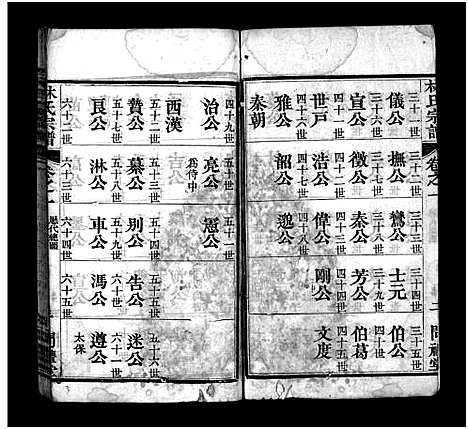 林氏宗譜 卷之一 二
三十一世 三十二世 三十三世 三十四世 三十五世
儀公 撫公 鸞公 士元 伯公
三十六世 三十七世 三十八世 三十九世 四十世
宣公 徵公 秦公 芳公 伯葛
四十一世 四十二世 四十三世 四十四世 四十五世
世戶 浩公 偉公 剛公 文度
四十六世 四十七世 四十八世
雅公 韶公 邈公
秦朝
四十九世 五十世 五十一世
治公 亮公 為侍中 憲公
西漢
五十二世 五十三世 五十四世 五十五世 五十六世
贊公 纂公 別公 告公 迷公
五十七世 五十八世 五十九世 六十世 六十一世
良公 淋公 車公 馮公 遵公 太保
六十二世 六十三世 六十四世 六十五世
林氏宗譜 卷之一 歷代總圖